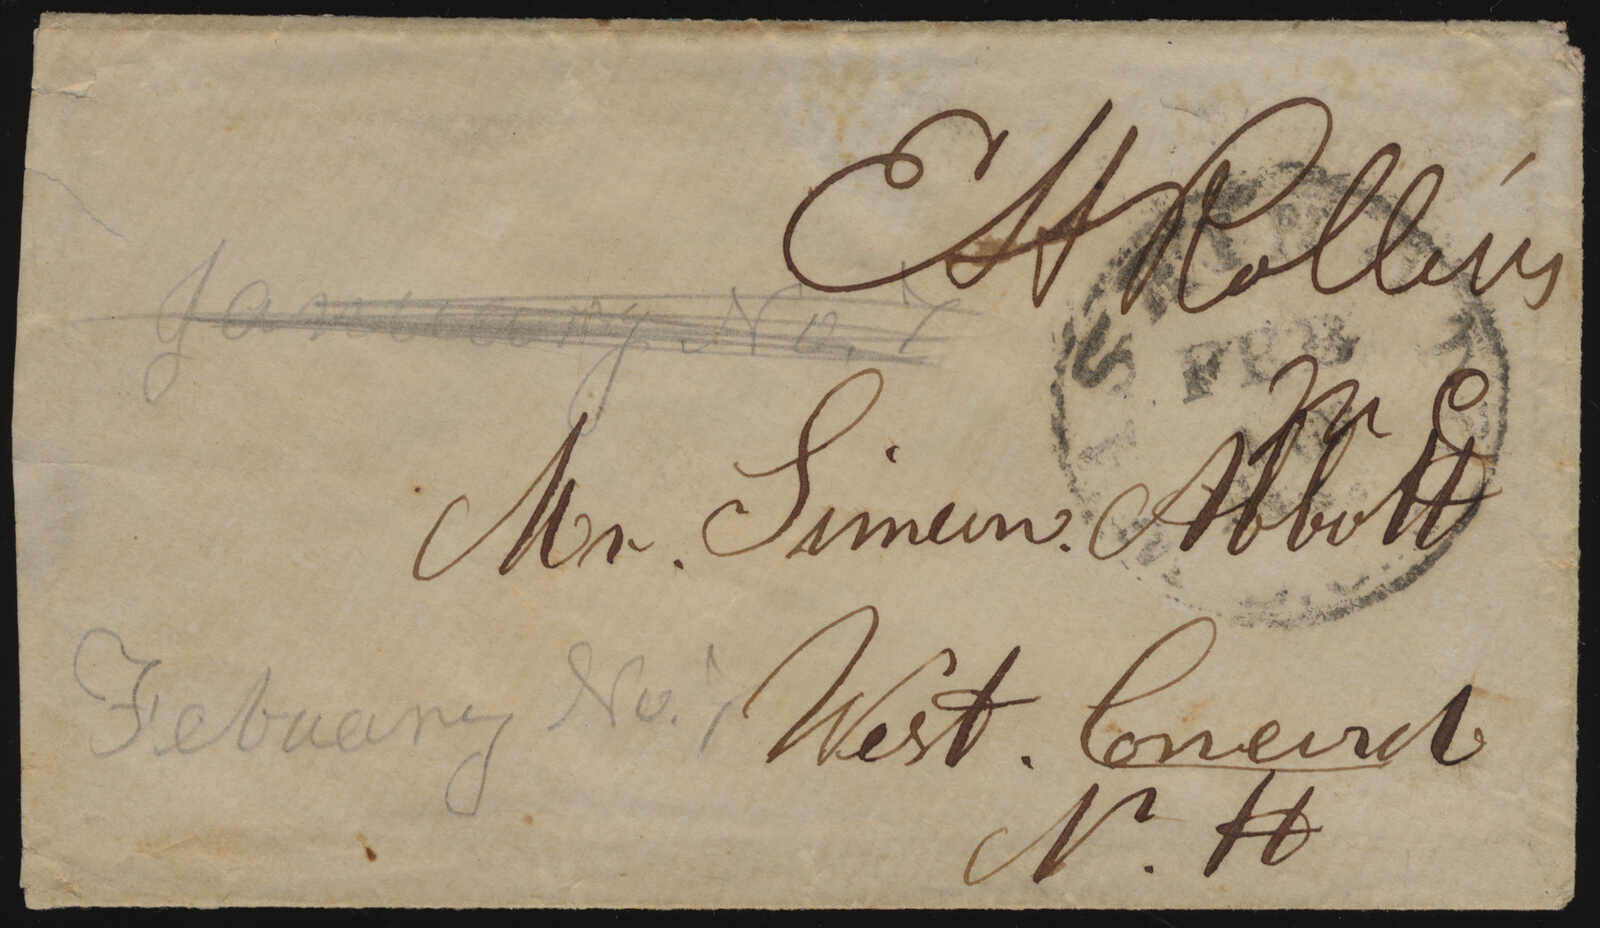 E H Rollins
January No. 7
FEB
M C
Mr. Simeon. Abbott
Febuary No. 7
West. Concord
N. H